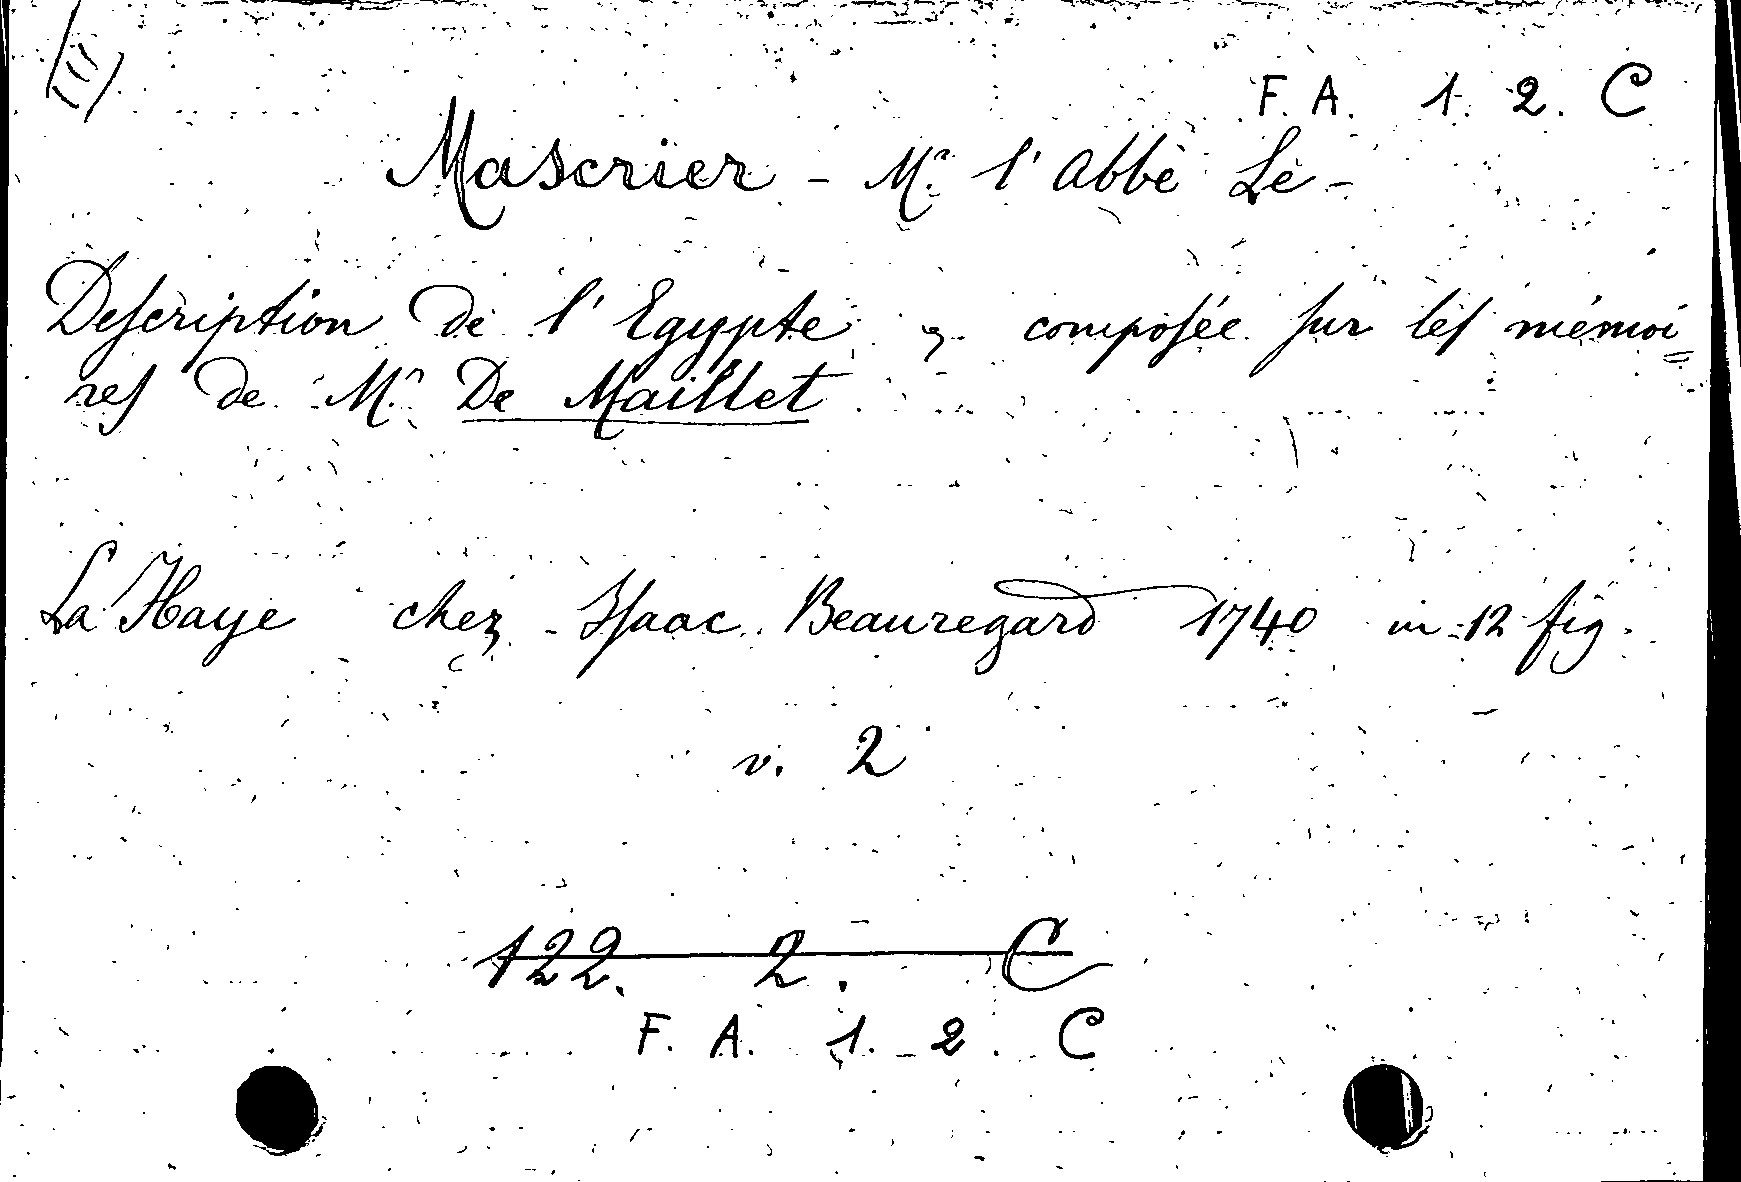 F. A. 1. 2. C
Mascrier - Mr. l'Abbé Le -
Description de l'Egypte, composée sur les mémoi=
res de Mr. De Maillet
La Haye chez Isaac Beauregard 1740 in-12 fig.
v. 2
122. 2. C
F. A. 1. 2. C